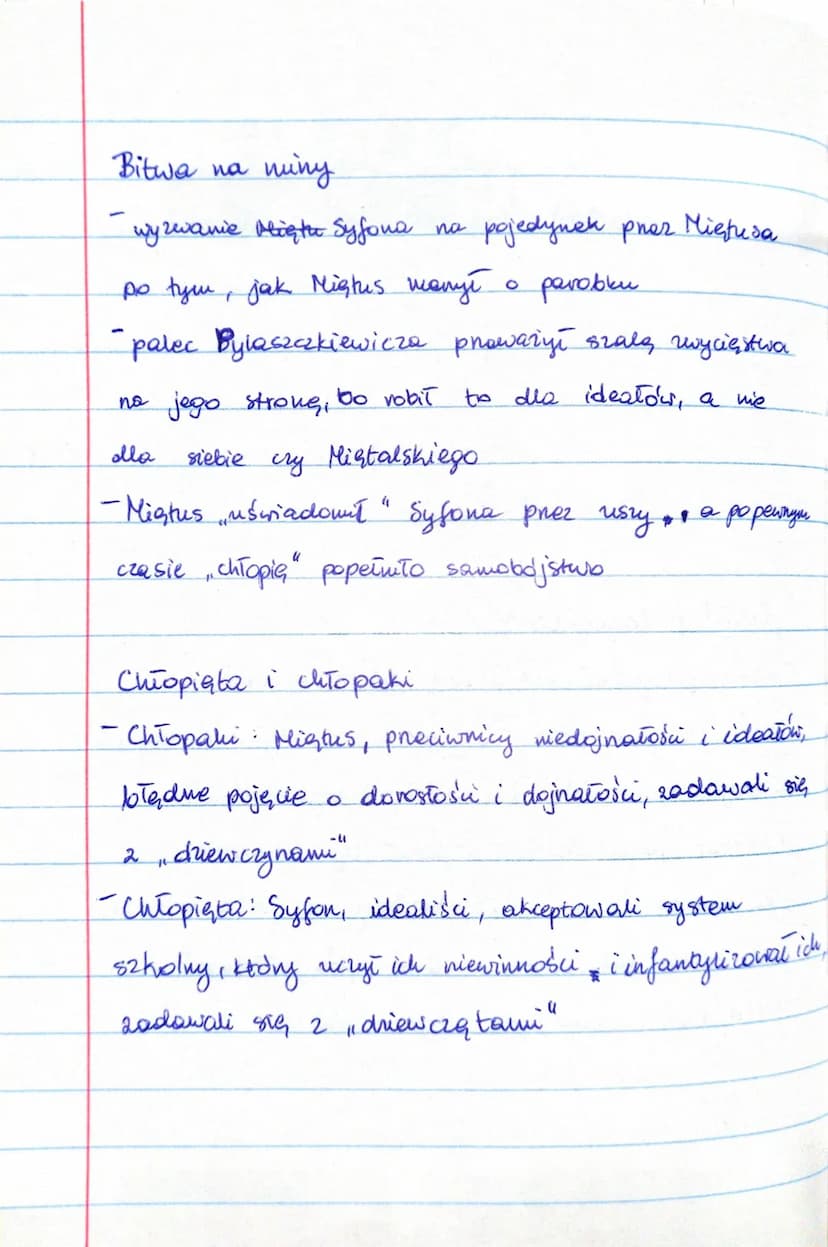 Bitwa na miny
- wyzwanie Miętu Syfona na pojedynek przez Miętusa
po tym, jak Miętus marzył o parobku
- palec Pylaszczkiewicza przeważył szalę zwycięstwa
na jego stronę, bo robił to dla ideałów, a nie
dla siebie czy Miętalskiego
- Miętus „uświadomił" Syfona przez uszy, a po pewnym
czasie „chłopię" popełniło samobójstwo
Chłopięta i chłopaki
- Chłopaki: Miętus, przeciwnicy niedojrzałości i ideałów,
błędne pojęcie o dorosłości i dojrzałości, zadawali się
z „dziewczynami"
- Chłopięta: Syfon, idealiści, akceptowali system
szkolny, który uczył ich niewinności i infantylizował ich,
zadawali się z „dziewczętami"